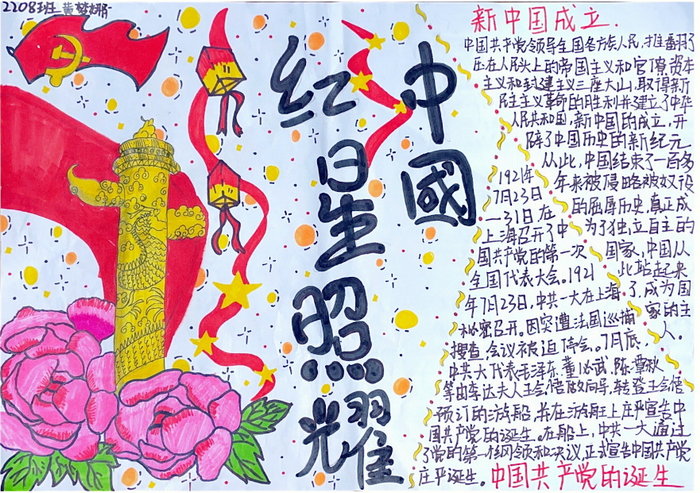 2208班
红星照耀
中國
新中国成立.
中国共产党领导全国各族人民,推翻了
压在人民头上的帝国主义和官僚资本
主义和封建主义三座大山,取得新
民主主义革命的胜利并建立了中华
人民共和国,新中国的成立,开
辟了中国历史的新纪元
从此,中国结束了一百多
年来被侵略被奴役
的屈辱历史真正成
为了独立自主的
国家,中国从
此站起来
了,成为国
家的主
人.
1921年
7月23日
—31日在
上海召开了中
国共产党的第一次
全国代表大会。1921
年7月23日,中共一大在上海
秘密召开,因突遭法国巡捕
搜查,会议被迫停会。7月底
中共大代表毛泽东、董必武、陈潭秋
等由李达夫人王会悟做向导,转登王会悟
预订的游船,并在游船上庄严宣告中
国共产党的诞生。在船上,中共一大通过
了党的第一个纲领和决议,正式宣告中国共产党
庄严诞生。
中国共产党的诞生